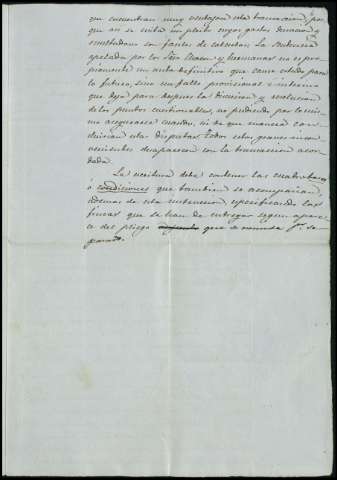 que encuentran muy ventajosa esta transaccion, por
que asi se evita un pleito cuyos gastos, duracion y
resultados no son faciles de calcular. La Sentencia
apelada por los Sres y hermanas no es pro
piamente un auto definitivo que cause estado para
lo futuro, sino un fallo provisional é interino
que deja para despues la discusion y resolucion
de los puntos cuestionables, no pudiendo por lo mis
mo asegurarse cuando, ni de que manera con
cluirian estas disputas. Todos estos graves incon
venientes desaparecen con la transaccion acor
dada.
La escritura debe contener las cuatro bases
ó condiciones que tambien se acompañan,
ademas de esta, especificando las
fincas que se han de entregar segun apare
ce del pliego que se remite pr. se
parado.